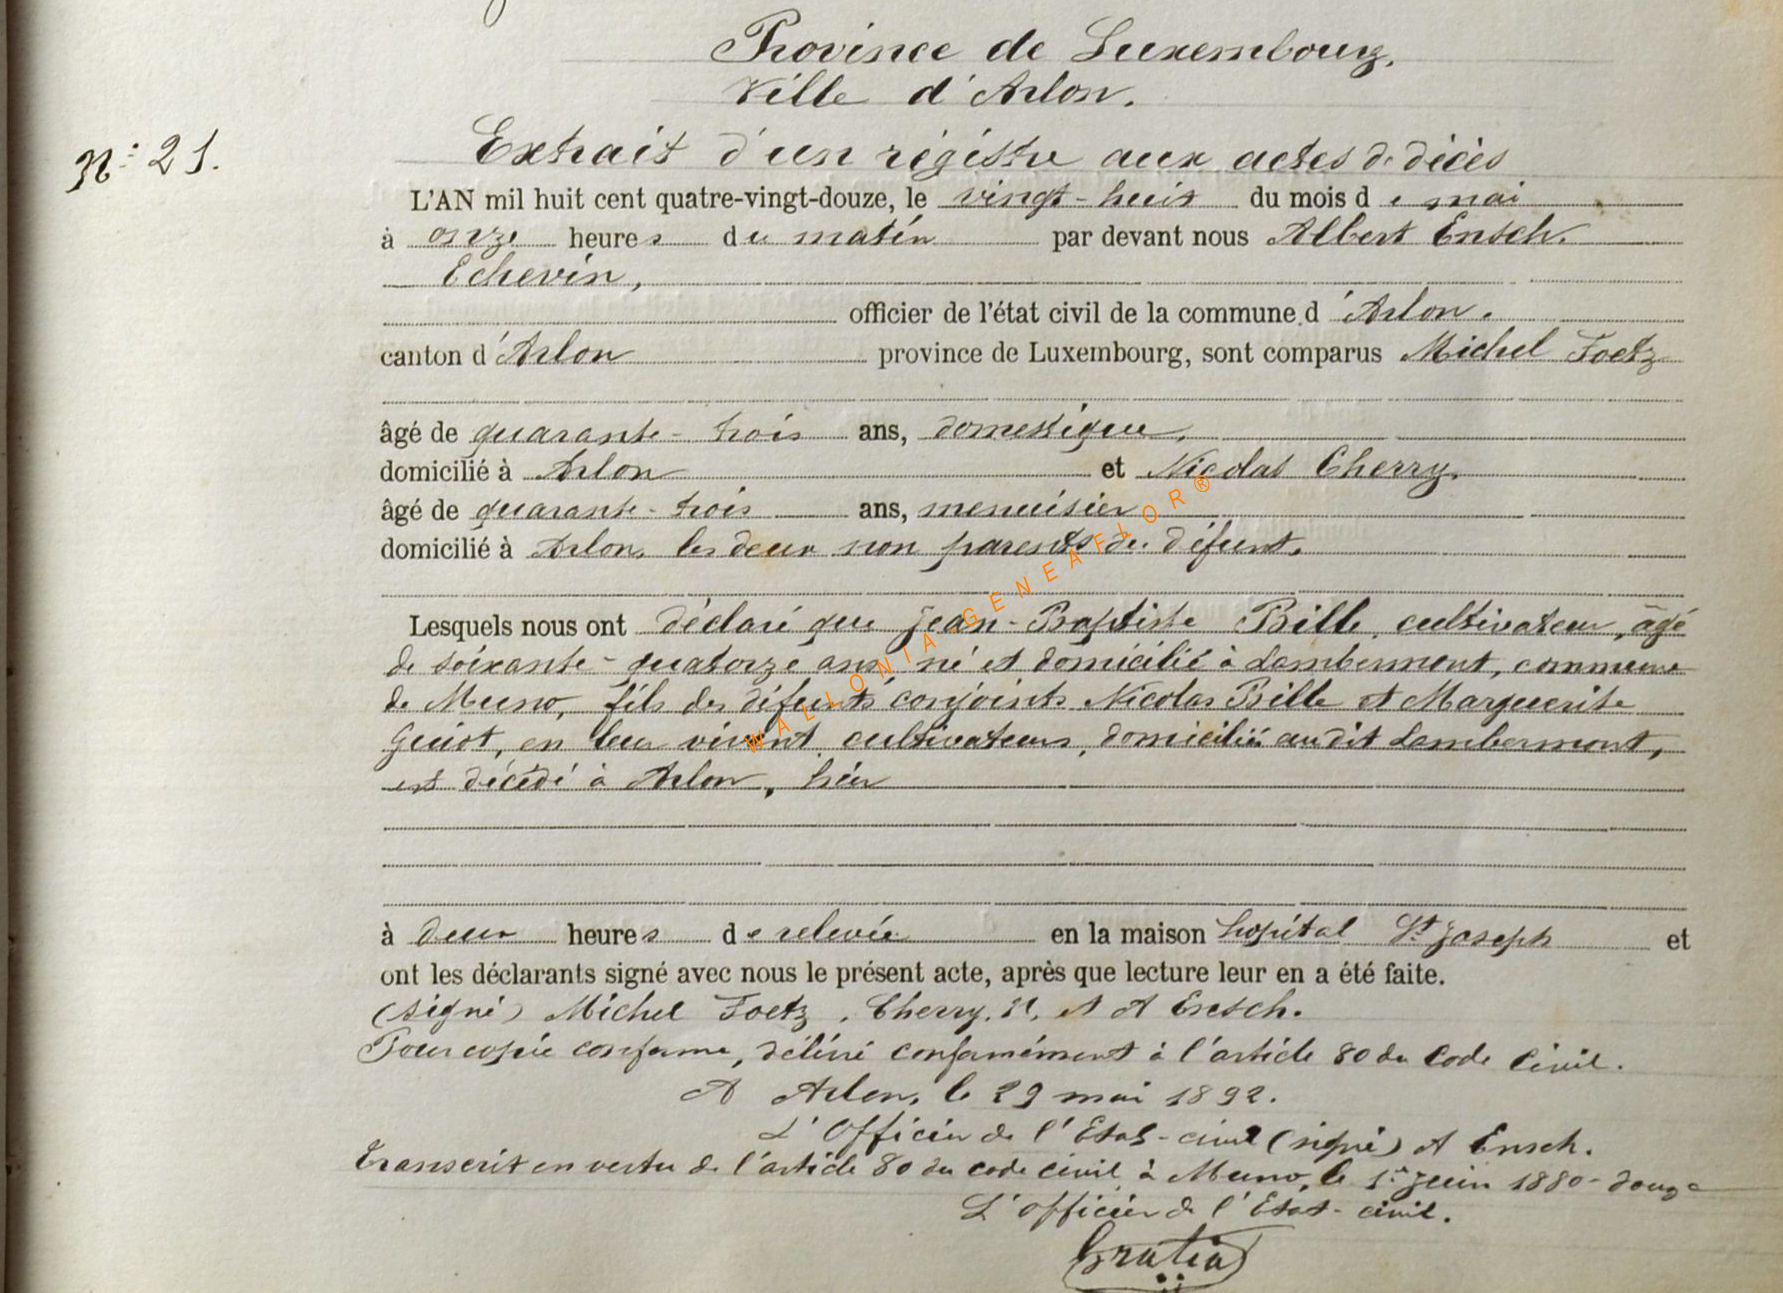 Province de Luxembourg.
Ville d'Arlon.
Extrait d'un régistre aux actes de décès
N° 21.
L'AN mil huit cent quatre-vingt-douze, le vingt-huit du mois de mai
à onze heures du matin par devant nous Albert Ensch.
Echevin,
officier de l'état civil de la commune d'Arlon.
canton d'Arlon province de Luxembourg, sont comparus Michel Foetz
âgé de quarante-trois ans, domestique,
domicilié à Arlon et Nicolas Cherry,
âgé de quarante-trois ans, menuisier
domicilié à Arlon, les deux non parents du défunt.
Lesquels nous ont déclaré que Jean-Baptiste Bille, cultivateur, âgé
de soixante-quatorze ans, né et domicilié à Lambermont, commune
de Muno, fils des défunts conjoints Nicolas Bille et Marguerite
Guiot, en leur vivant cultivateurs, domiciliés audit Lambermont,
est décédé à Arlon, hier
à deux heures de relevée en la maison hopital St Joseph et
ont les déclarants signé avec nous le présent acte, après que lecture leur en a été faite.
(signé) Michel Foetz, Cherry. N, et A Ensch.
Pour copie conforme, délivré conformément à l'article 80 du Code Civil.
A Arlon, le 29 mai 1892.
L'Officier de l'Etat-civil (signé) A Ensch.
Transcrit en vertu de l'article 80 du code civil à Muno, le 1er Juin 1880-douze
L'officier de l'Etat-civil.
Gratia
WALLONIA GENEAFLOR®